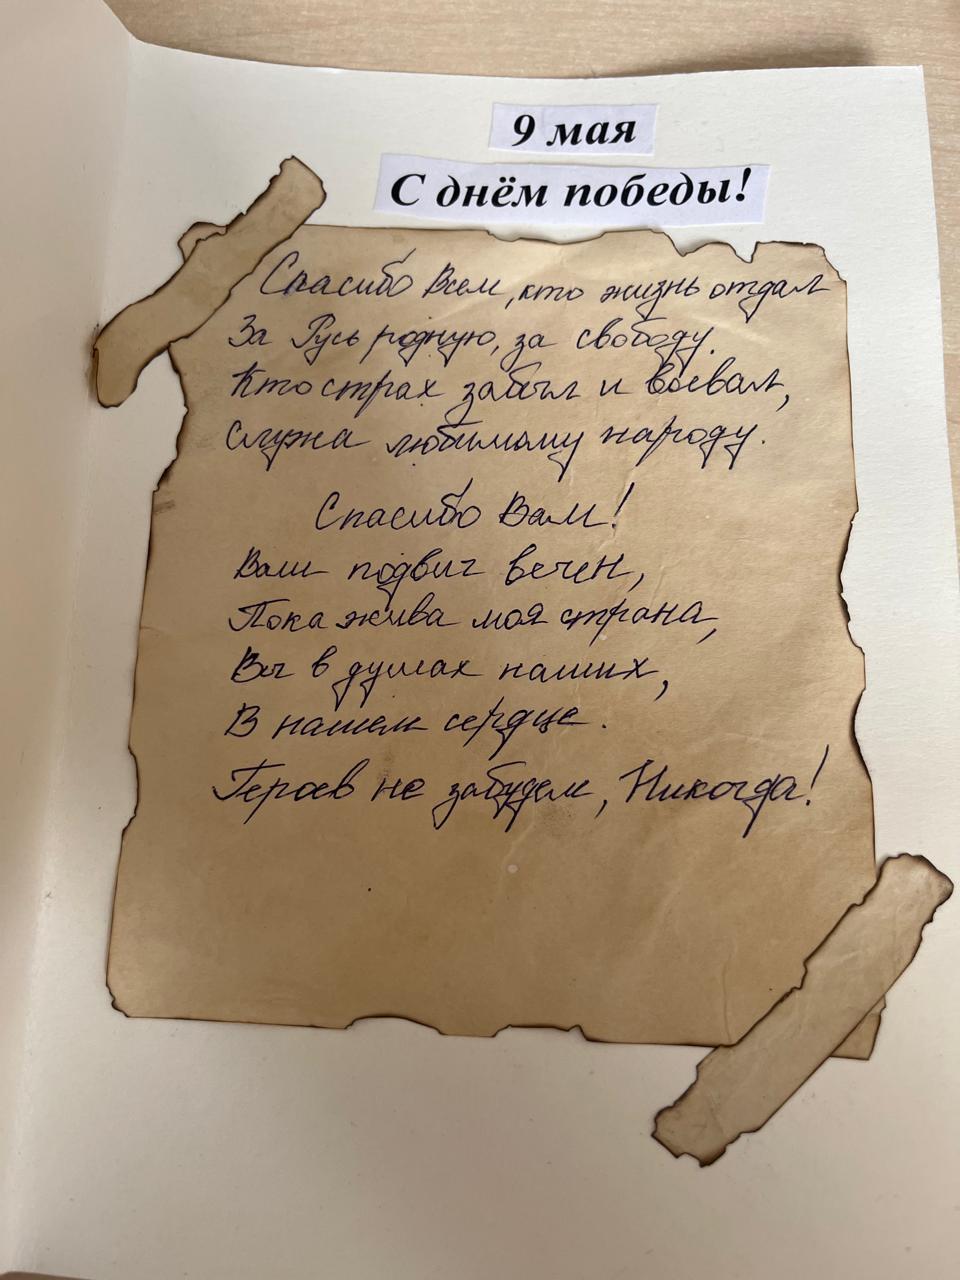 9 мая
С днём победы!
Спасибо Всем, кто жизнь отдал
За Русь родную, за свободу.
Кто страх забыл и воевал,
Служа любимому народу.
Спасибо Вам!
Ваш подвиг вечен,
Пока жива моя страна,
Вы в душах наших,
В нашем сердце.
Героев не забудем, Никогда!